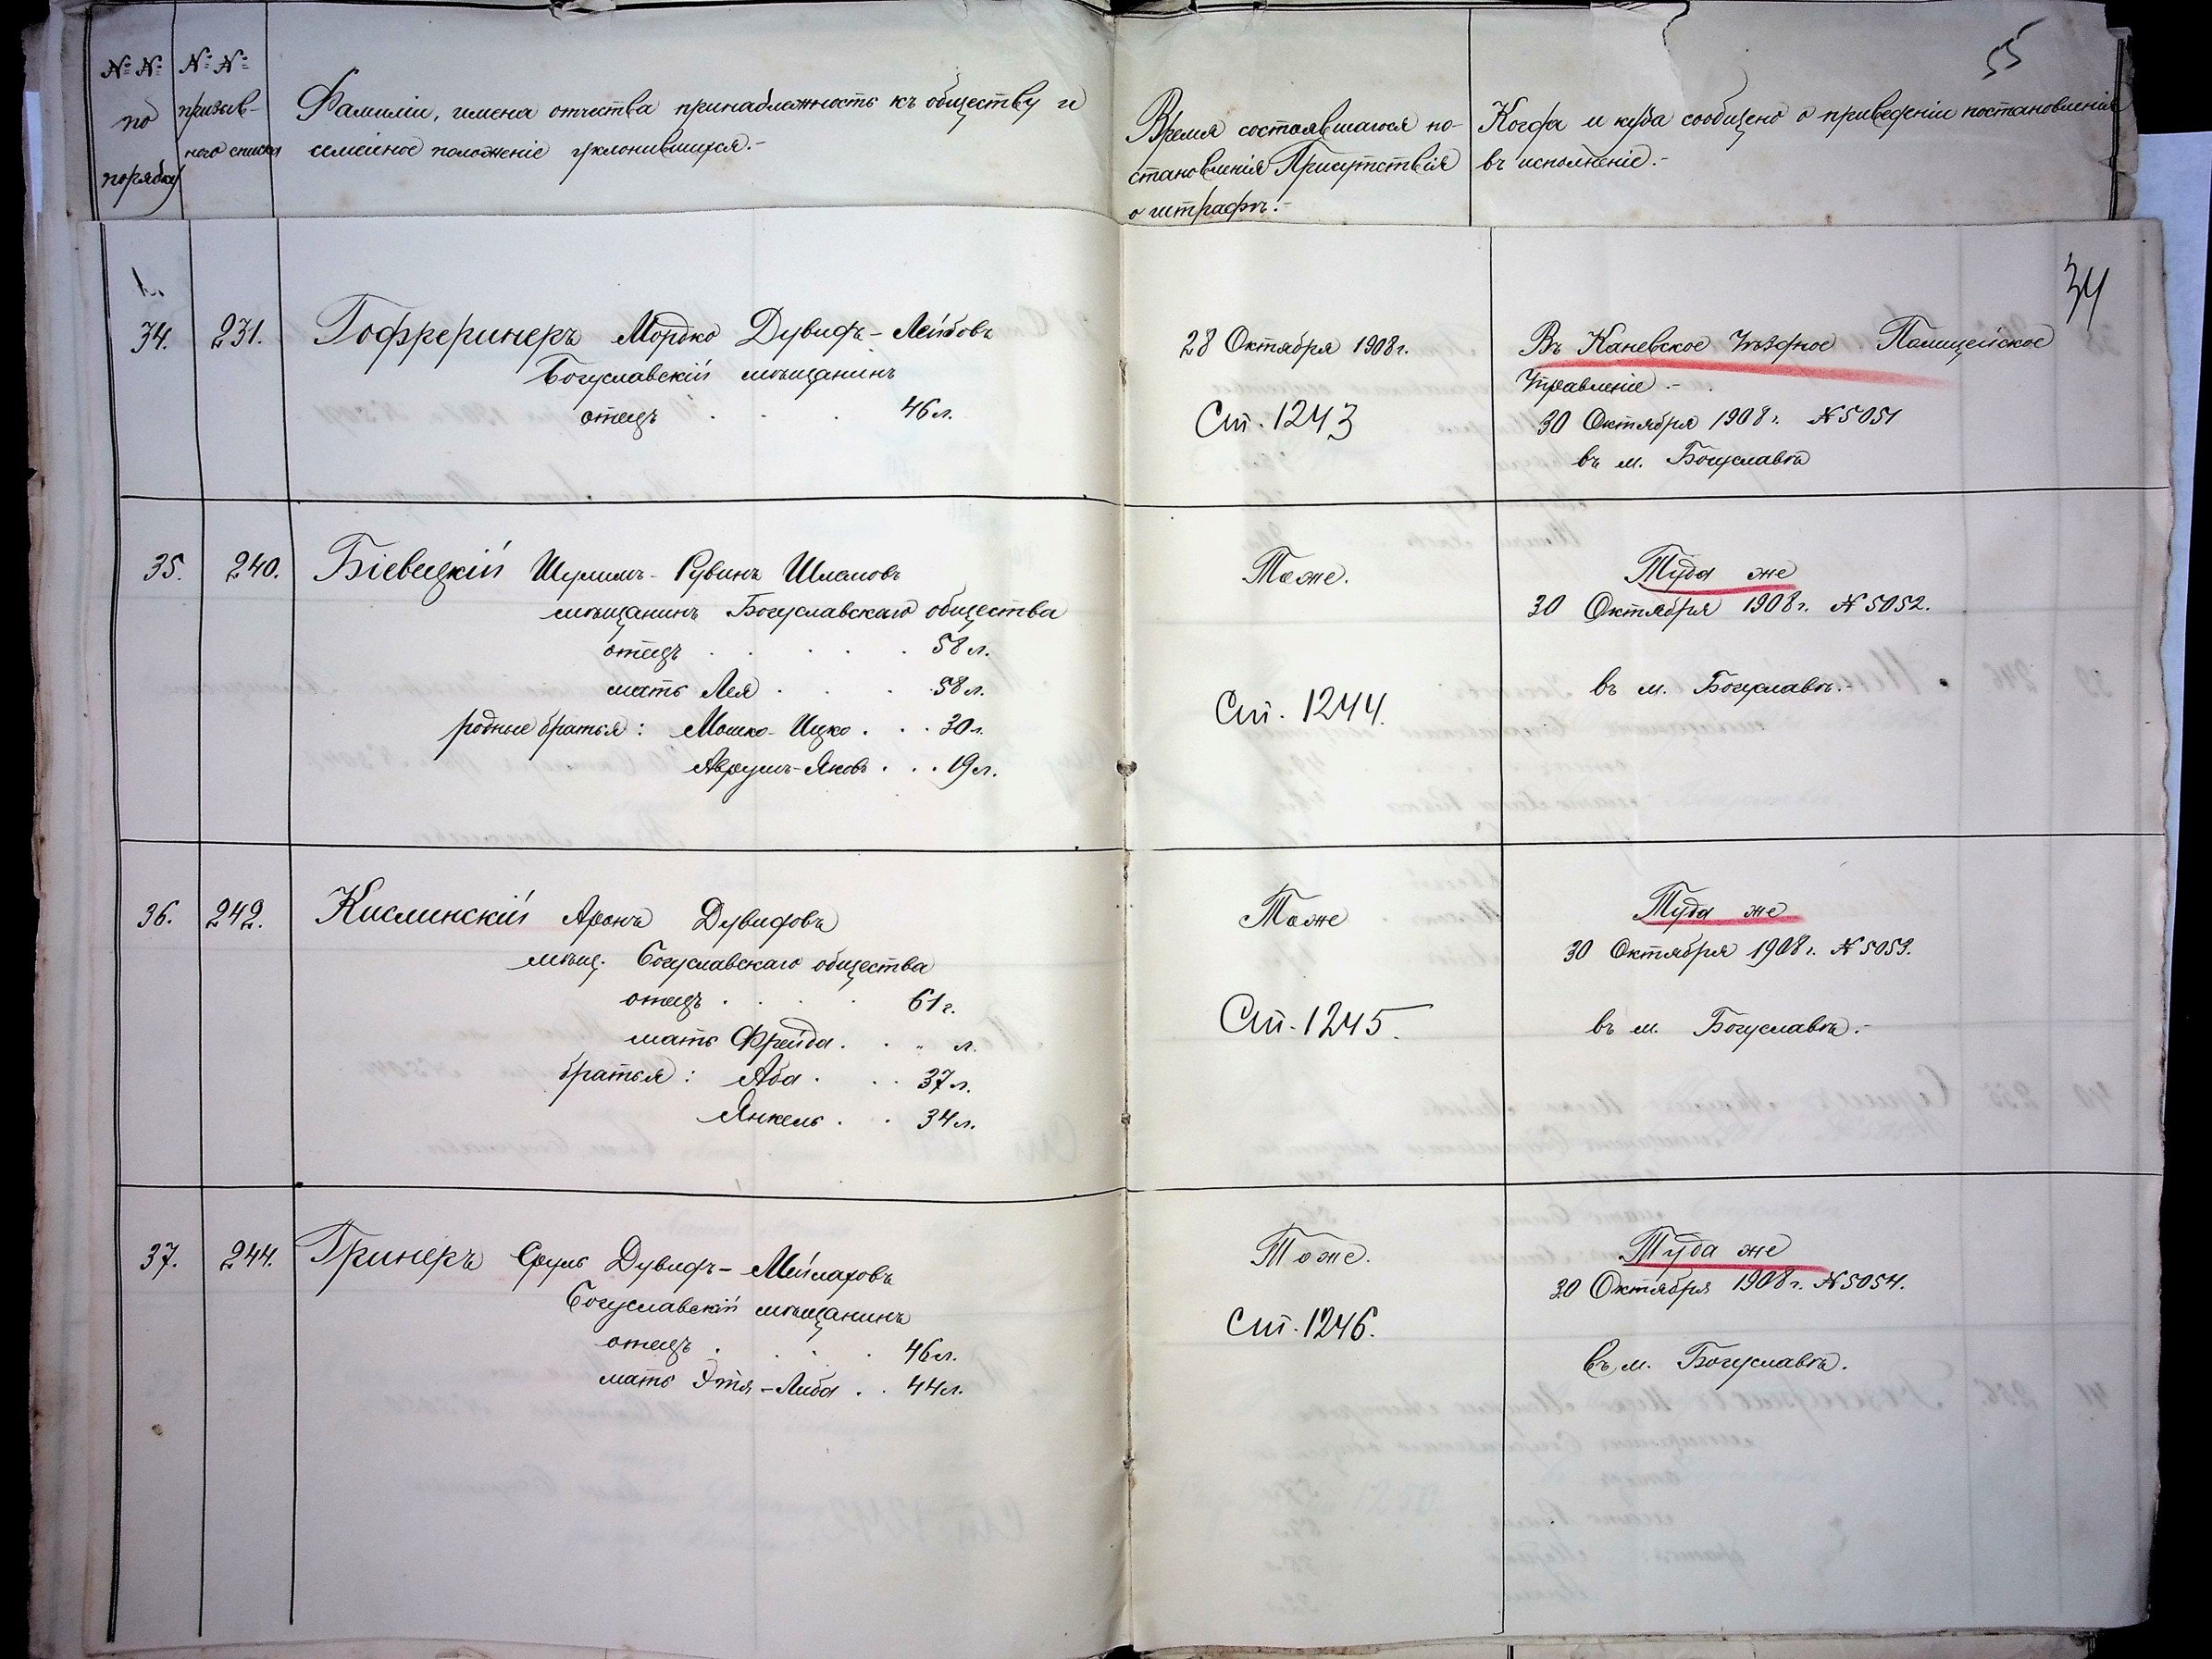 № №
по
порядку
№ №
призыв-
ного списка
Фамиліи, имена отчества принадлежность къ обществу и
семейное положеніе уклонившихся.-
Время состоявшагося по-
становленія Присутствія
о штрафѣ.-
Когда и куда сообщено о приведеніи постановленія
въ исполненіе.-
55
34
34. 231. Гофреринеръ Мордко Дувидъ-Лейбовъ
Богуславскій мѣщанинъ
отецъ . . . 46 л.
28 Октября 1908 г.
Ст. 1243
Въ Каневское Уѣздное Полицейское
Управленіе.-
30 Октября 1908 г. № 5051
въ м. Богуславѣ
35. 240. Біевецкій Шулимъ-Рувинъ Шмаловъ
мѣщанинъ Богуславскаго общества
отецъ . . . . . 58 л.
мать Лея . . . 58 л.
родные братья: Мошко-Ицко . . . 30 л.
Аврумъ-Яковъ . . . 19 л.
Тоже.
Ст. 1244.
Туда же
30 Октября 1908 г. № 5052.
въ м. Богуславѣ.-
36. 242. Кислинскій Аронъ Дувидовъ
мѣщ. Богуславскаго общества
отецъ . . . . 61 г.
мать Фрейда . . „ л.
братья: Аба . . . 37 л.
Янкель . . 34 л.
Тоже
Ст. 1245.
Туда же
30 Октября 1908 г. № 5053.
въ м. Богуславѣ.-
37. 244. Гринеръ Сруль Дувидъ-Мейлаховъ
Богуславскій мѣщанинъ
отецъ . . . . 46 л.
мать Этя-Либа . . 44 л.
Тоже.
Ст. 1246.
Туда же
30 Октября 1908 г. № 5054.
въ м. Богуславѣ.